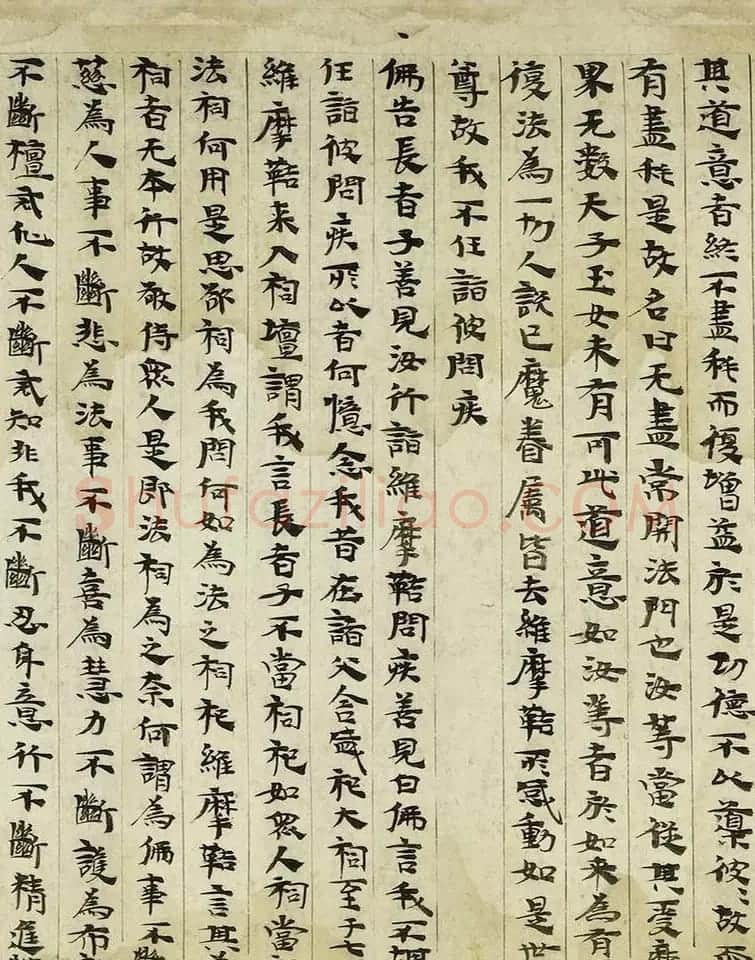 其道意者終不盡耗而復增益於是功德不以導彼彼故而
有盡耗是故名曰无盡常開法門也汝等當從其受
界无数天子玉女未有可此道意如汝等者於如来為有
復法為一切人說已魔眷屬皆去維摩鞊所感動如是世
尊故我不任詣彼問疾
佛告長者子善見汝行詣維摩鞊問疾善見白佛言我不堪
任詣彼問疾所以者何憶念我昔在諸父舍盛祀大祠至于七
維摩鞊来入祠壇謂我言長者子不當祠祀如眾人祠當
法祠何用是思欲祠為我問何如為法之祠祀維摩鞊言其
祠者无本祈故敬侍眾人是即法祠為之奈何謂為佛事不斷
慈為人事不斷悲為法事不斷喜為慧力不斷護為布
不斷檀戒化人不斷戒知非我不斷忍身意行不斷精進
Shufaziliao.com